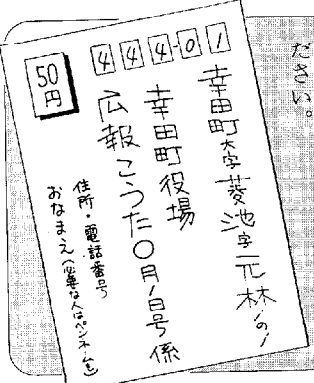 ださい。
444-01
50円
幸田町大字菱池字元林1の1
幸田町役場
広報こうた〇月1日号係
住所・電話番号
おなまえ(必要な人はペンネームも)